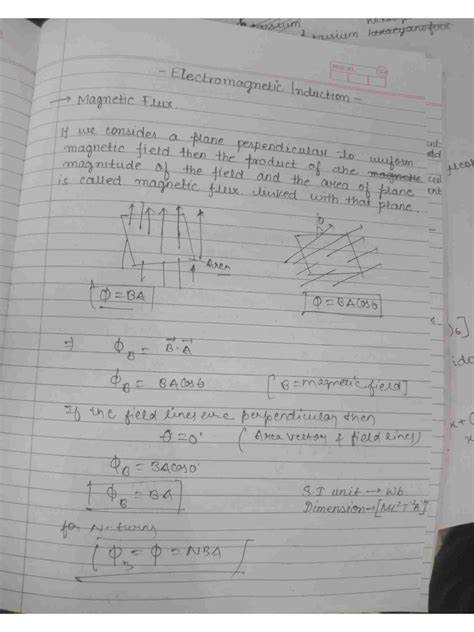 - Electromagnetic Induction -
→ Magnetic Flux
If we consides a plane perpendicular to uniform
magnetic field then the product of the magnetic
magnitude of the field and the area of plane
is called magnetic flux linked with that plane.
Area
ϕ = BA
ϕ = BA cosθ
⇒ ϕB = B⃗·A⃗
ϕB = BA cosθ [B = magnetic field]
If the field lines are perpendicular then
θ = 0° (Area vector & field lines)
ϕB = BA cos0°
ϕB = BA
S.I unit → Wb
Dimension → [ML²T⁻²A⁻¹]
for N-turns
ϕB = ϕ = NBA